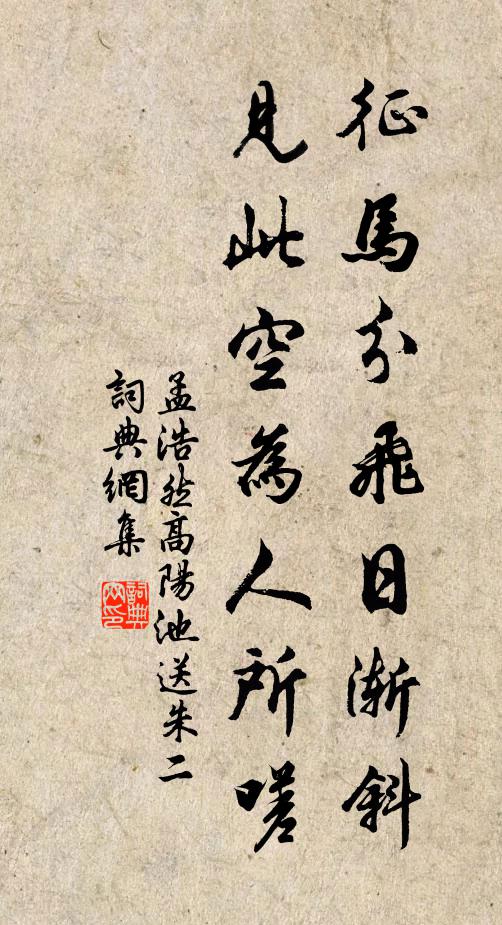 征馬分飛日漸斜
見此空為人所嗟
孟浩然高陽池送朱二
詞典網集
詞典
網印